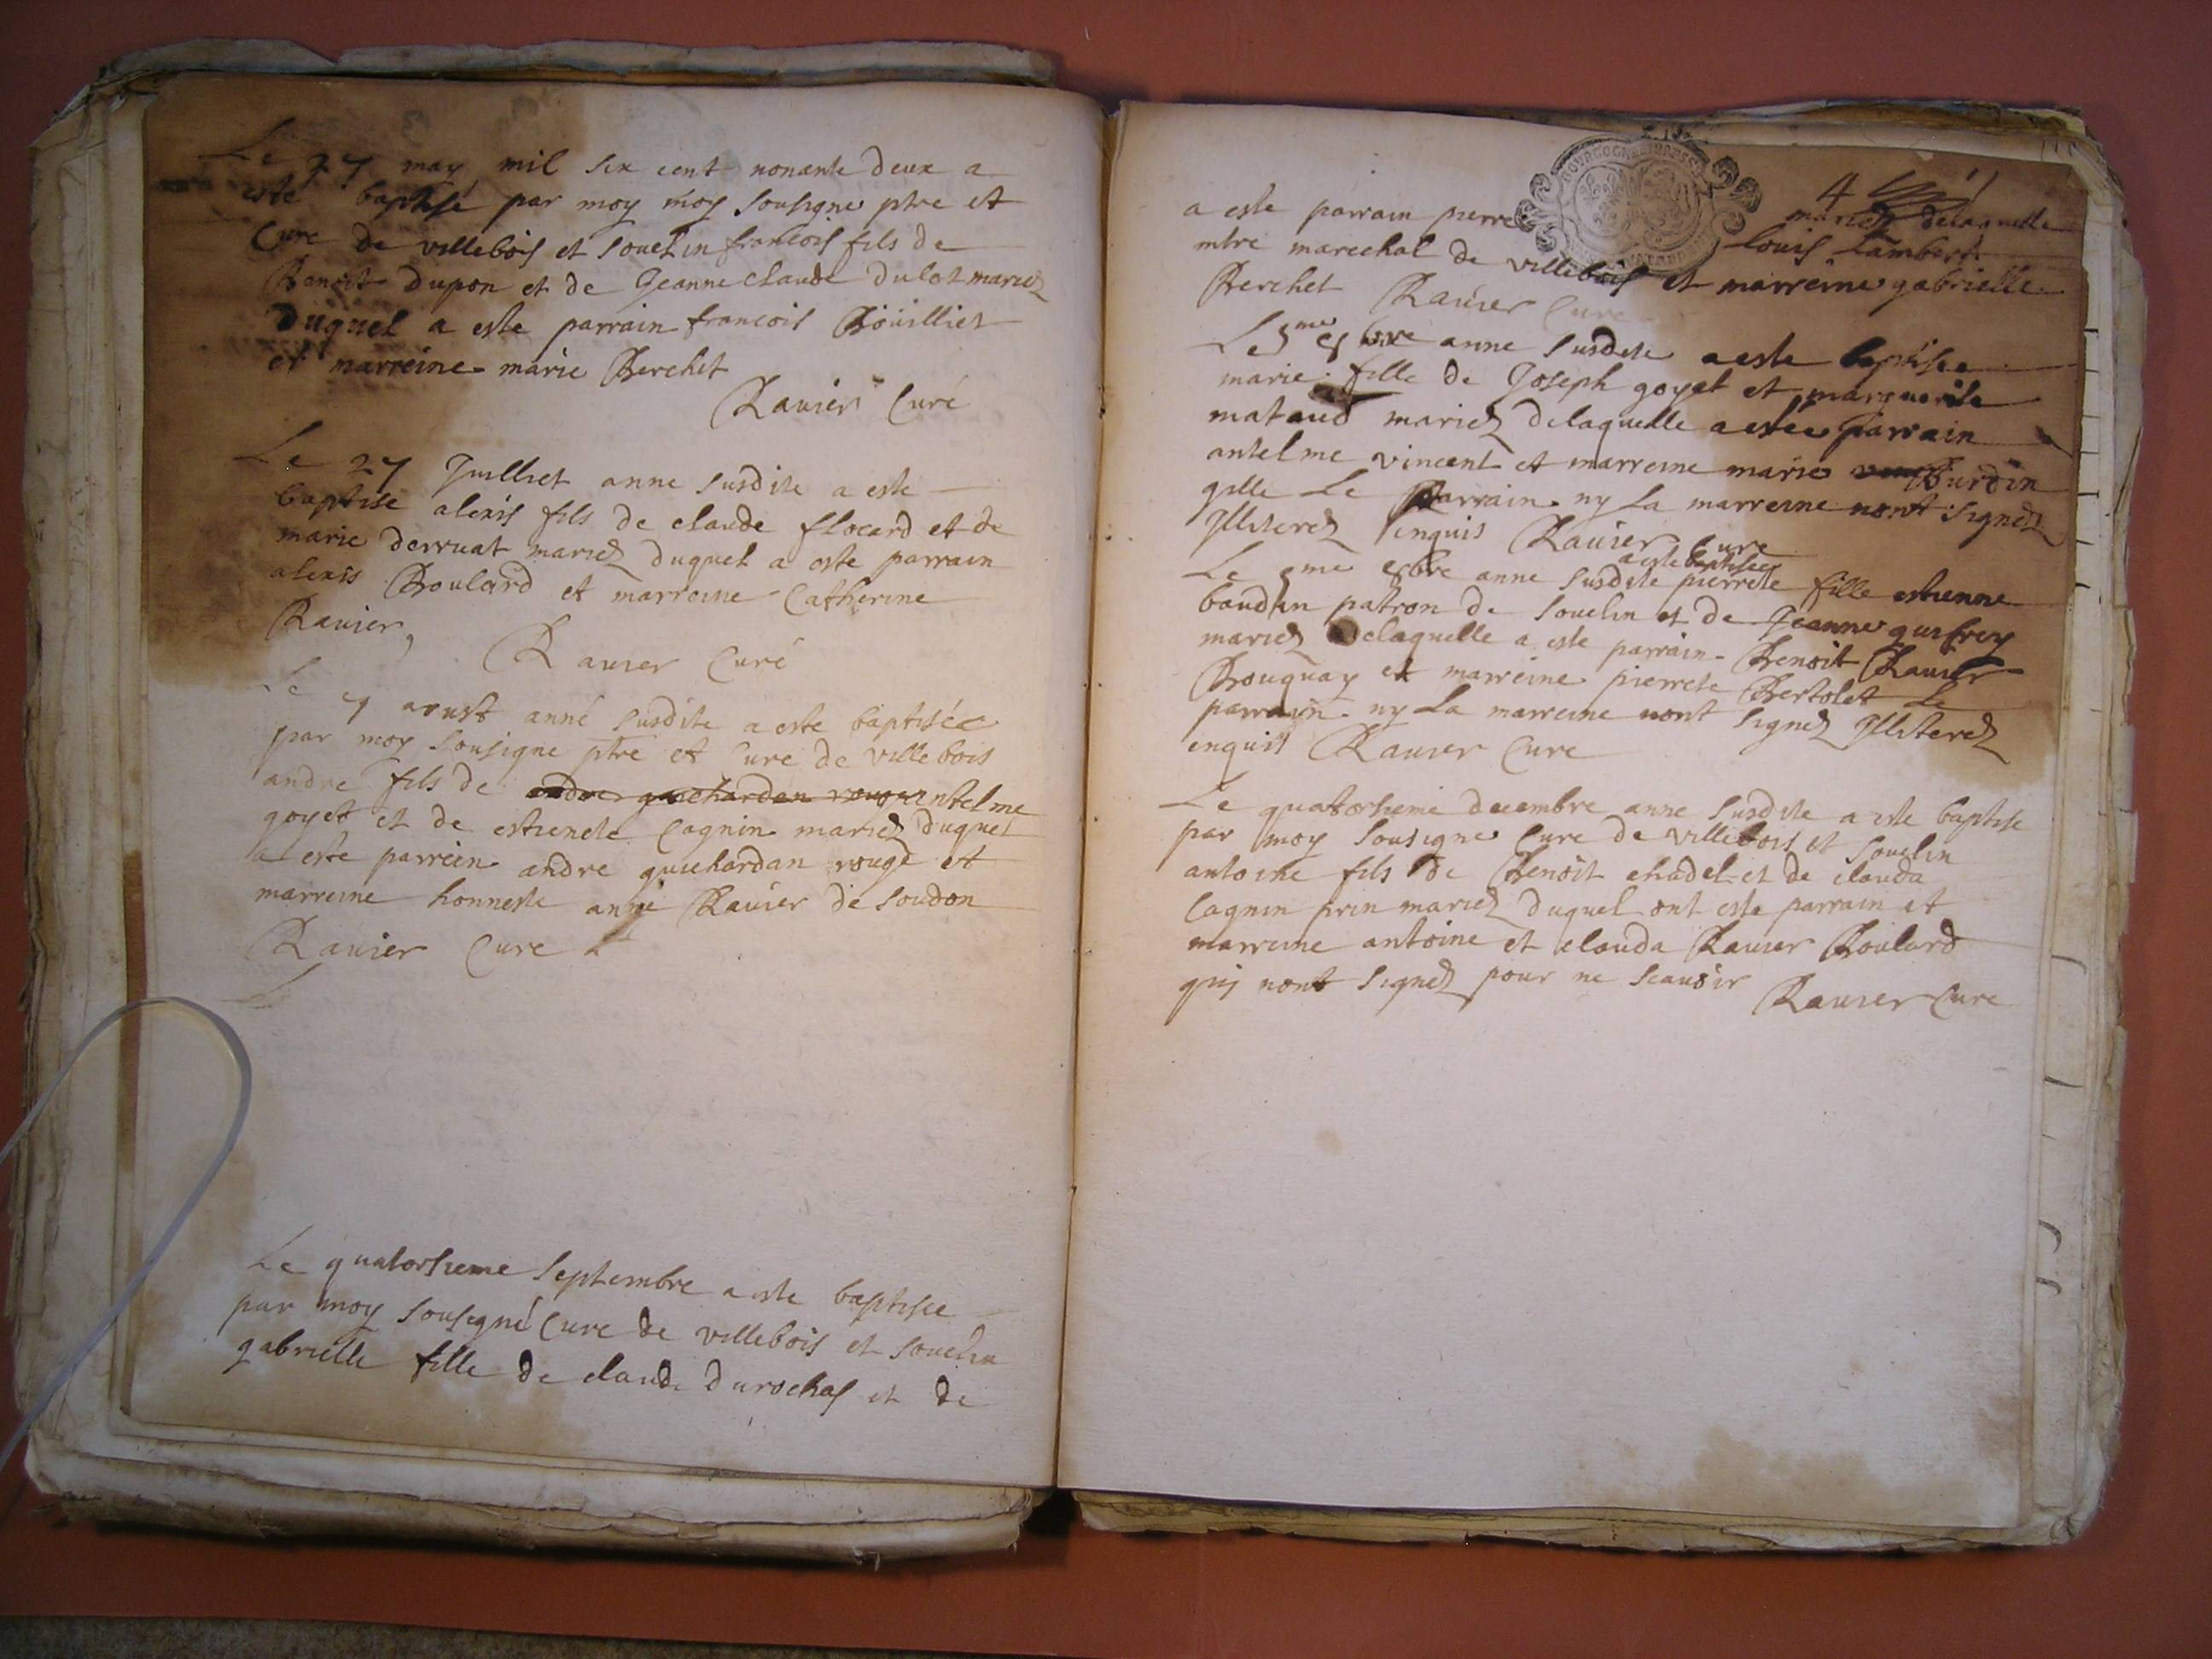 Le 27 may mil six cent nonante deux a
esté baptisé par moy moy sousigne ptre et
Cure de villebois et souclin francois fils de
Benoit dupon et de Jeanne Claude dulot mariez
Duquel a este parrain francois Boüilliet
et marreine marie Berchet
Ravier Curé
Le 27 Juilliet anne susdite a este
baptise alexis fils de claude flocard et de
marie derruat mariez duquel a este parrain
alexis Boulard et marreine Catherine
Ravier,
Ravier Curé
Le 7 aoust anné susdite a este baptisée
par moy sousigne ptre et Cure de villebois
andre fils de andre guichardan rouge antelme
goyet et de estienete Cagnin mariez duquel
a este parrein andre guichardan rouge et
marreine honneste anne Ravier de soudon
Ravier Cure
Le quatorsieme septembre a este baptisee
par moy sousigné Cure de villebois et souclin
gabrielle fille de claude durochas et de
BOURGOGNE
4
mariez delaquelle
a este parrain pierre louis Lambert
mtre marechal de villebois et marreine gabrielle
Berchet Ravier Cure
Le 5me 8bre anne susdite a este baptisee
marie fille de Joseph goyet et marguerite
mataud mariez delaquelle a estée parrain
antelme vincent et marreine marie Burdin
gille Le Parrain ny la marreine nont signez
Illiterez enquis Ravier Cure
a este baptisee
Le 5me 8bre anne susdite pierrete fille estienne
baudin patron de souclin et de Jeanne guifrey
mariez delaquelle a este parrain Benoit Ravier
Bouquay et marreine pierrete Bertolet Le
parrain ny la marreine nont signez Illiterez
enquis Ravier Cure
Le quatorsieme decembre anne susdite a este baptise
par moy sousigne Cure de villebois et souclin
antoine fils de Benoit chadel et de clauda
Cagnin prin mariez duquel ont este parrain et
marreine antoine et clauda Ravier Boulard
qui nont signez pour ne scavoir Ravier Cure